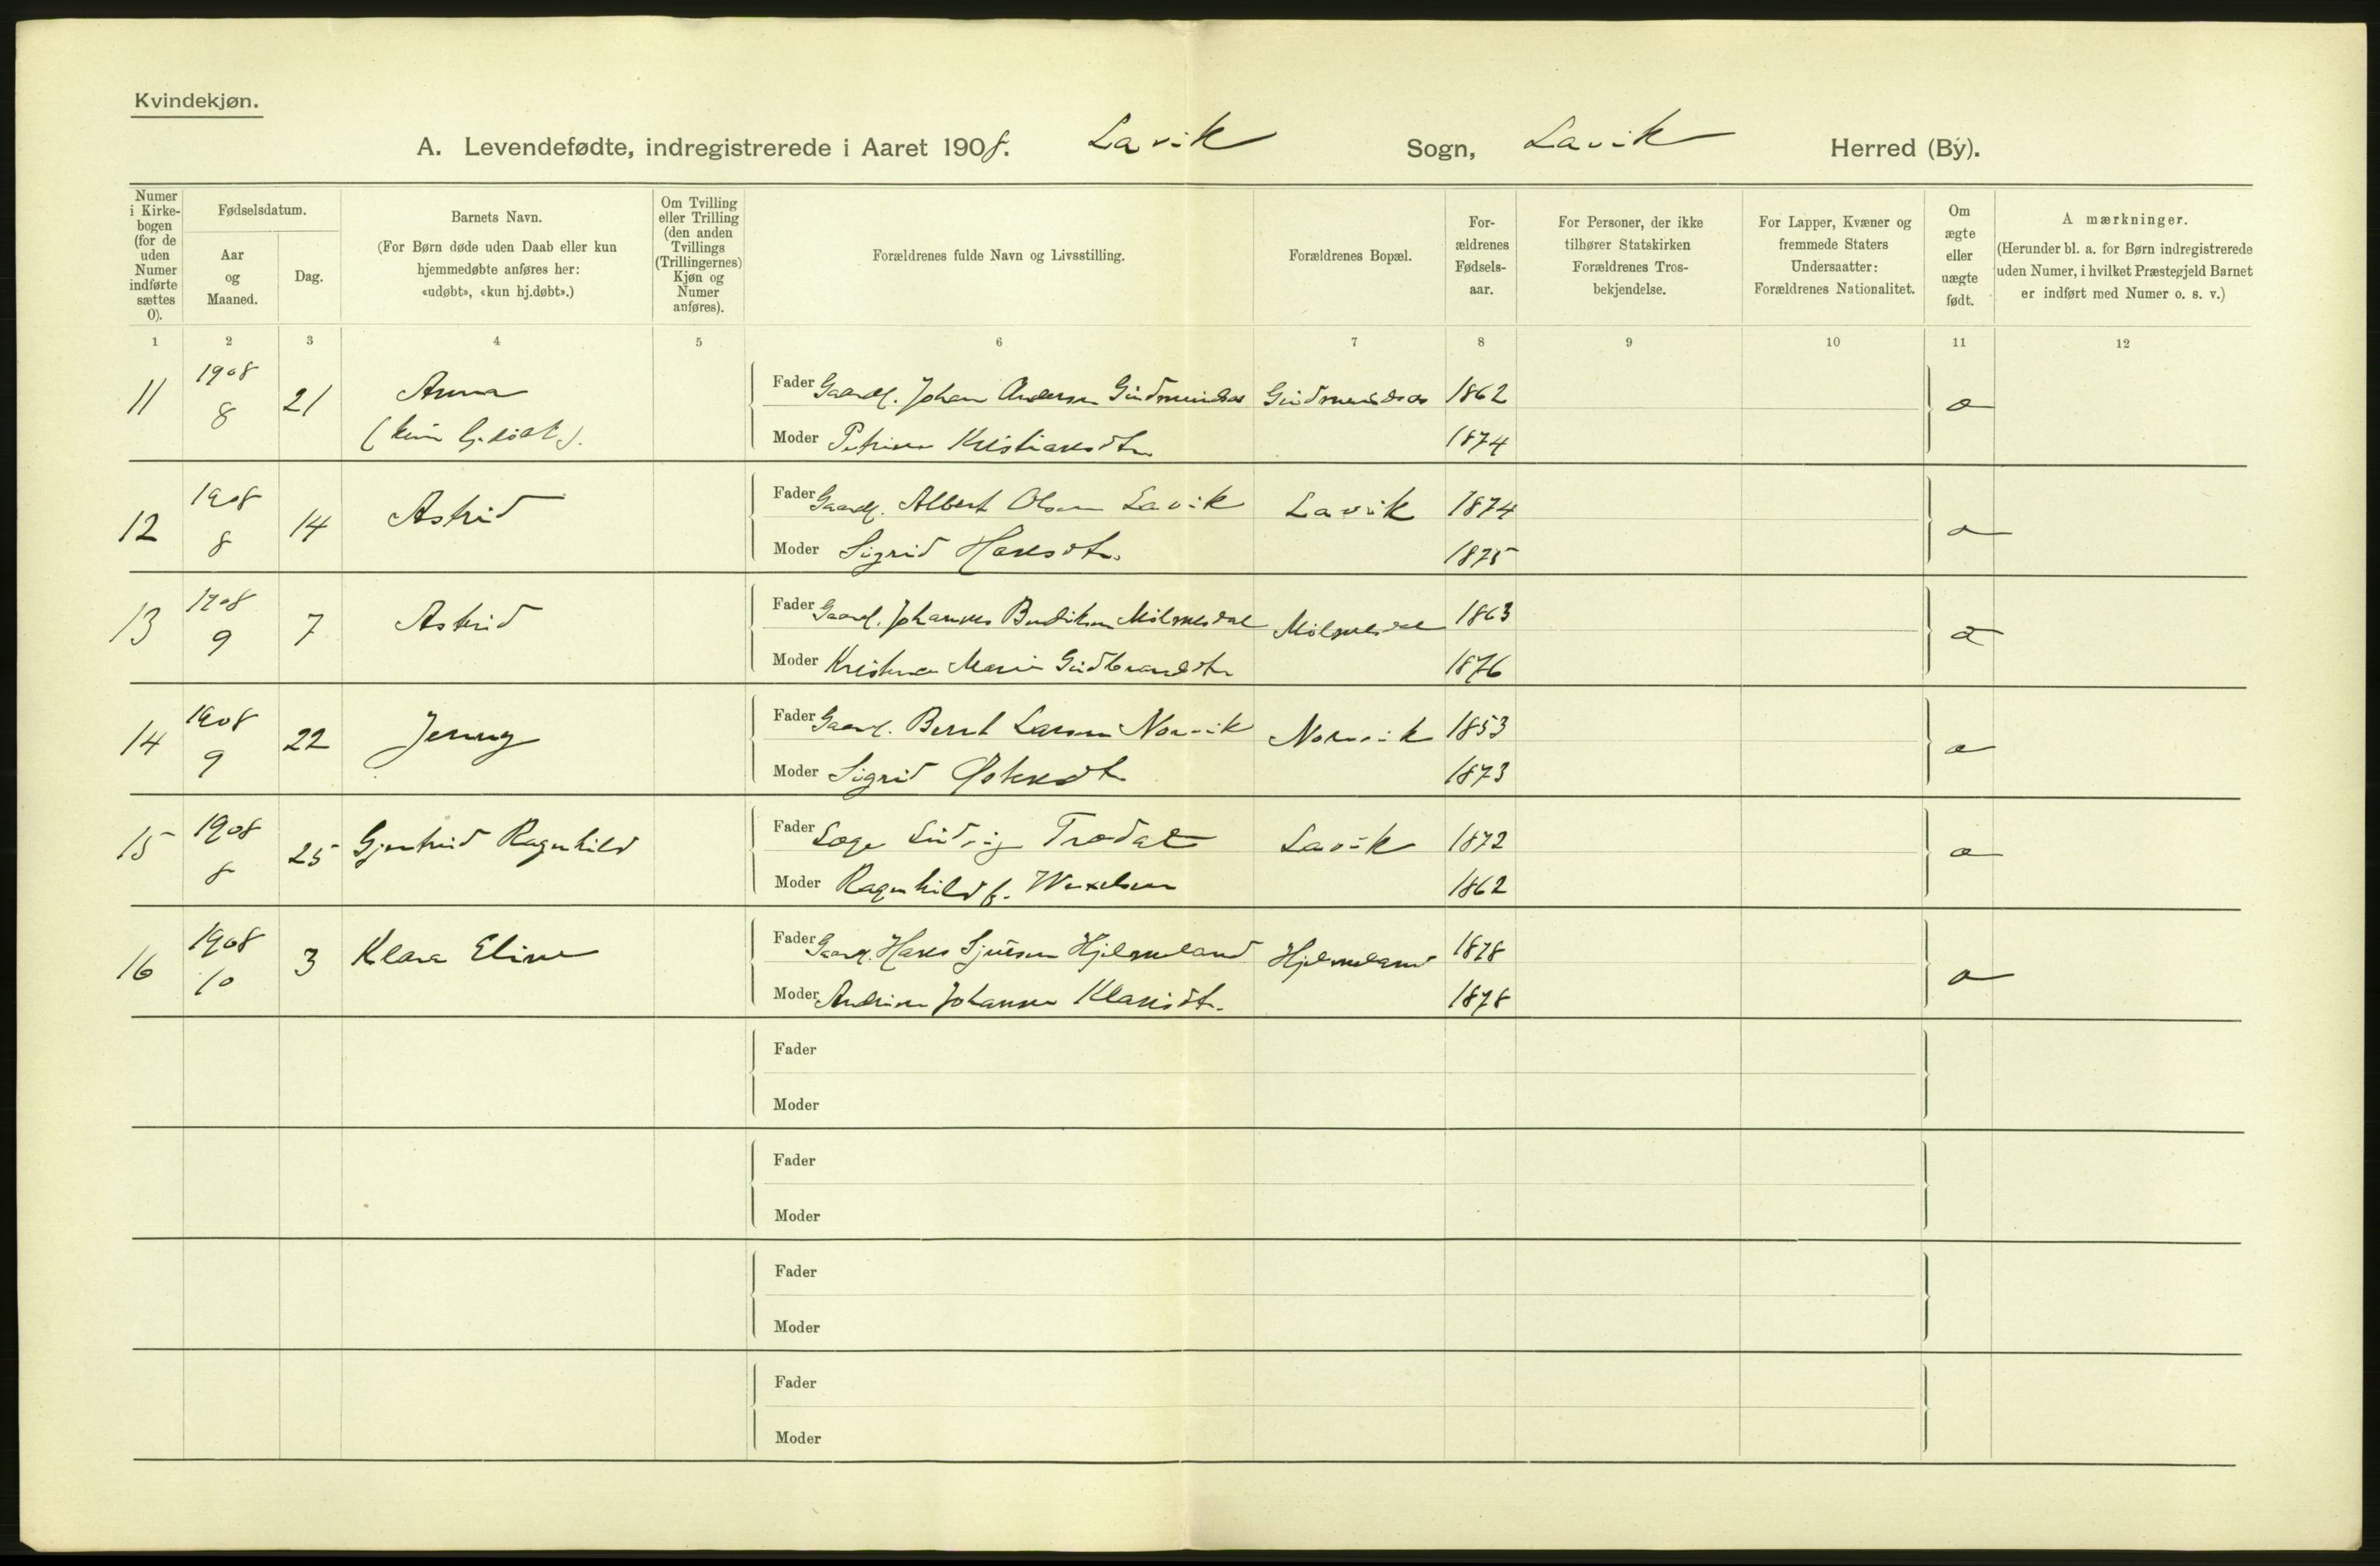 Kvindekjøn.
A. Levendefødte, indregistrerede i Aaret 1908. Lavik Sogn, Lavik Herred (By).
Numer i Kirkebogen (for de uden Numer indførte sættes 0).
Fødselsdatum.
Aar og Maaned.
Dag.
Barnets Navn.
(For Børn døde uden Daab eller kun hjemmedøbte anføres her: «udøbt», «kun hj.døbt».)
Om Tvilling eller Trilling (den anden Tvillings (Trillingernes) Kjøn og Numer anføres).
Forældrenes fulde Navn og Livsstilling.
Forældrenes Bopæl.
For-
ældrenes
Fødsels-
aar.
For Personer, der ikke
tilhører Statskirken
Forældrenes Tros-
bekjendelse.
For Lapper, Kvæner og
fremmede Staters
Undersaatter:
Forældrenes Nationalitet.
Om
ægte
eller
uægte
født.
A mærkninger.
(Herunder bl. a. for Børn indregistrerede
uden Numer, i hvilket Præstegjeld Barnet
er indført med Numer o. s. v.)
1 2 3 4 5 6 7 8 9 10 11 12
11 1908 8 21 Anna
(kun hj.døbt).
Fader Gaardb. Johan Andersen 1862
Moder Kristiansdtr 1874
12 1908 8 14 Astrid
Fader Gaardb. Albert Olsen Lavik Lavik 1874
Moder Sigrid Hansdtr. 1875
13 1908 9 7 Astrid
Fader Gaardb. Johannes 1863
Moder Marie Gudbrandsdtr 1876
14 1908 9 22 Jenny
Fader Gaardb. Bernt Larsen Norvik Norvik 1853
Moder Sigrid 1873
15 1908 8 25 Gjertrud Ragnhild
Fader Læge Ludvig Lavik 1872
Moder Ragnhild f. Wexelsen 1862
16 1908 10 3 Klara Eline
Fader Gaardb. Hans Hjelmeland Hjelmeland 1878
Moder 1878
Fader
Moder
Fader
Moder
Fader
Moder
Fader
Moder